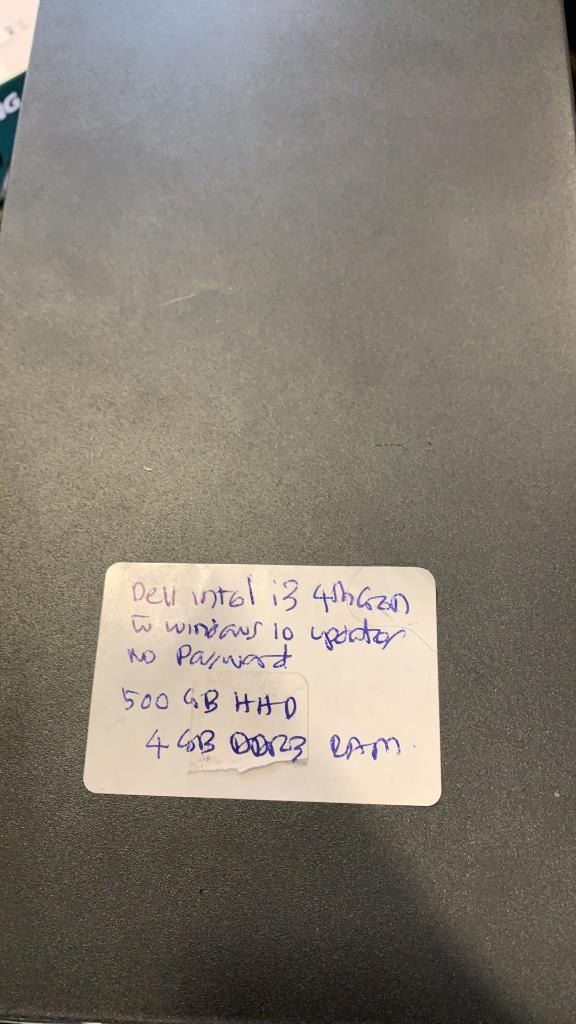 G
Dell intel i3 4th Gen
windows 10 updater
NO Password
500 GB HHD
4 GB DDR3 RAM.